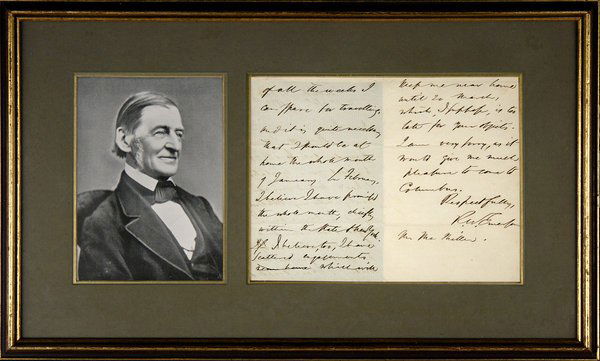 of all the weeks I
can spare for travelling,
and it is quite necessary
that I should be at
home the whole month
of January. In February,
I believe I have promised
the whole month, chiefly
within the State of
I believe, too, I have
scattered engagements
near home which will
keep me near home
until 20 March,
which, I suppose, is too
late for your objects.
I am very sorry, as it
would give me much
pleasure to come to
Columbus.
Respectfully,
R W Emerson
Mr. Mc Millen.